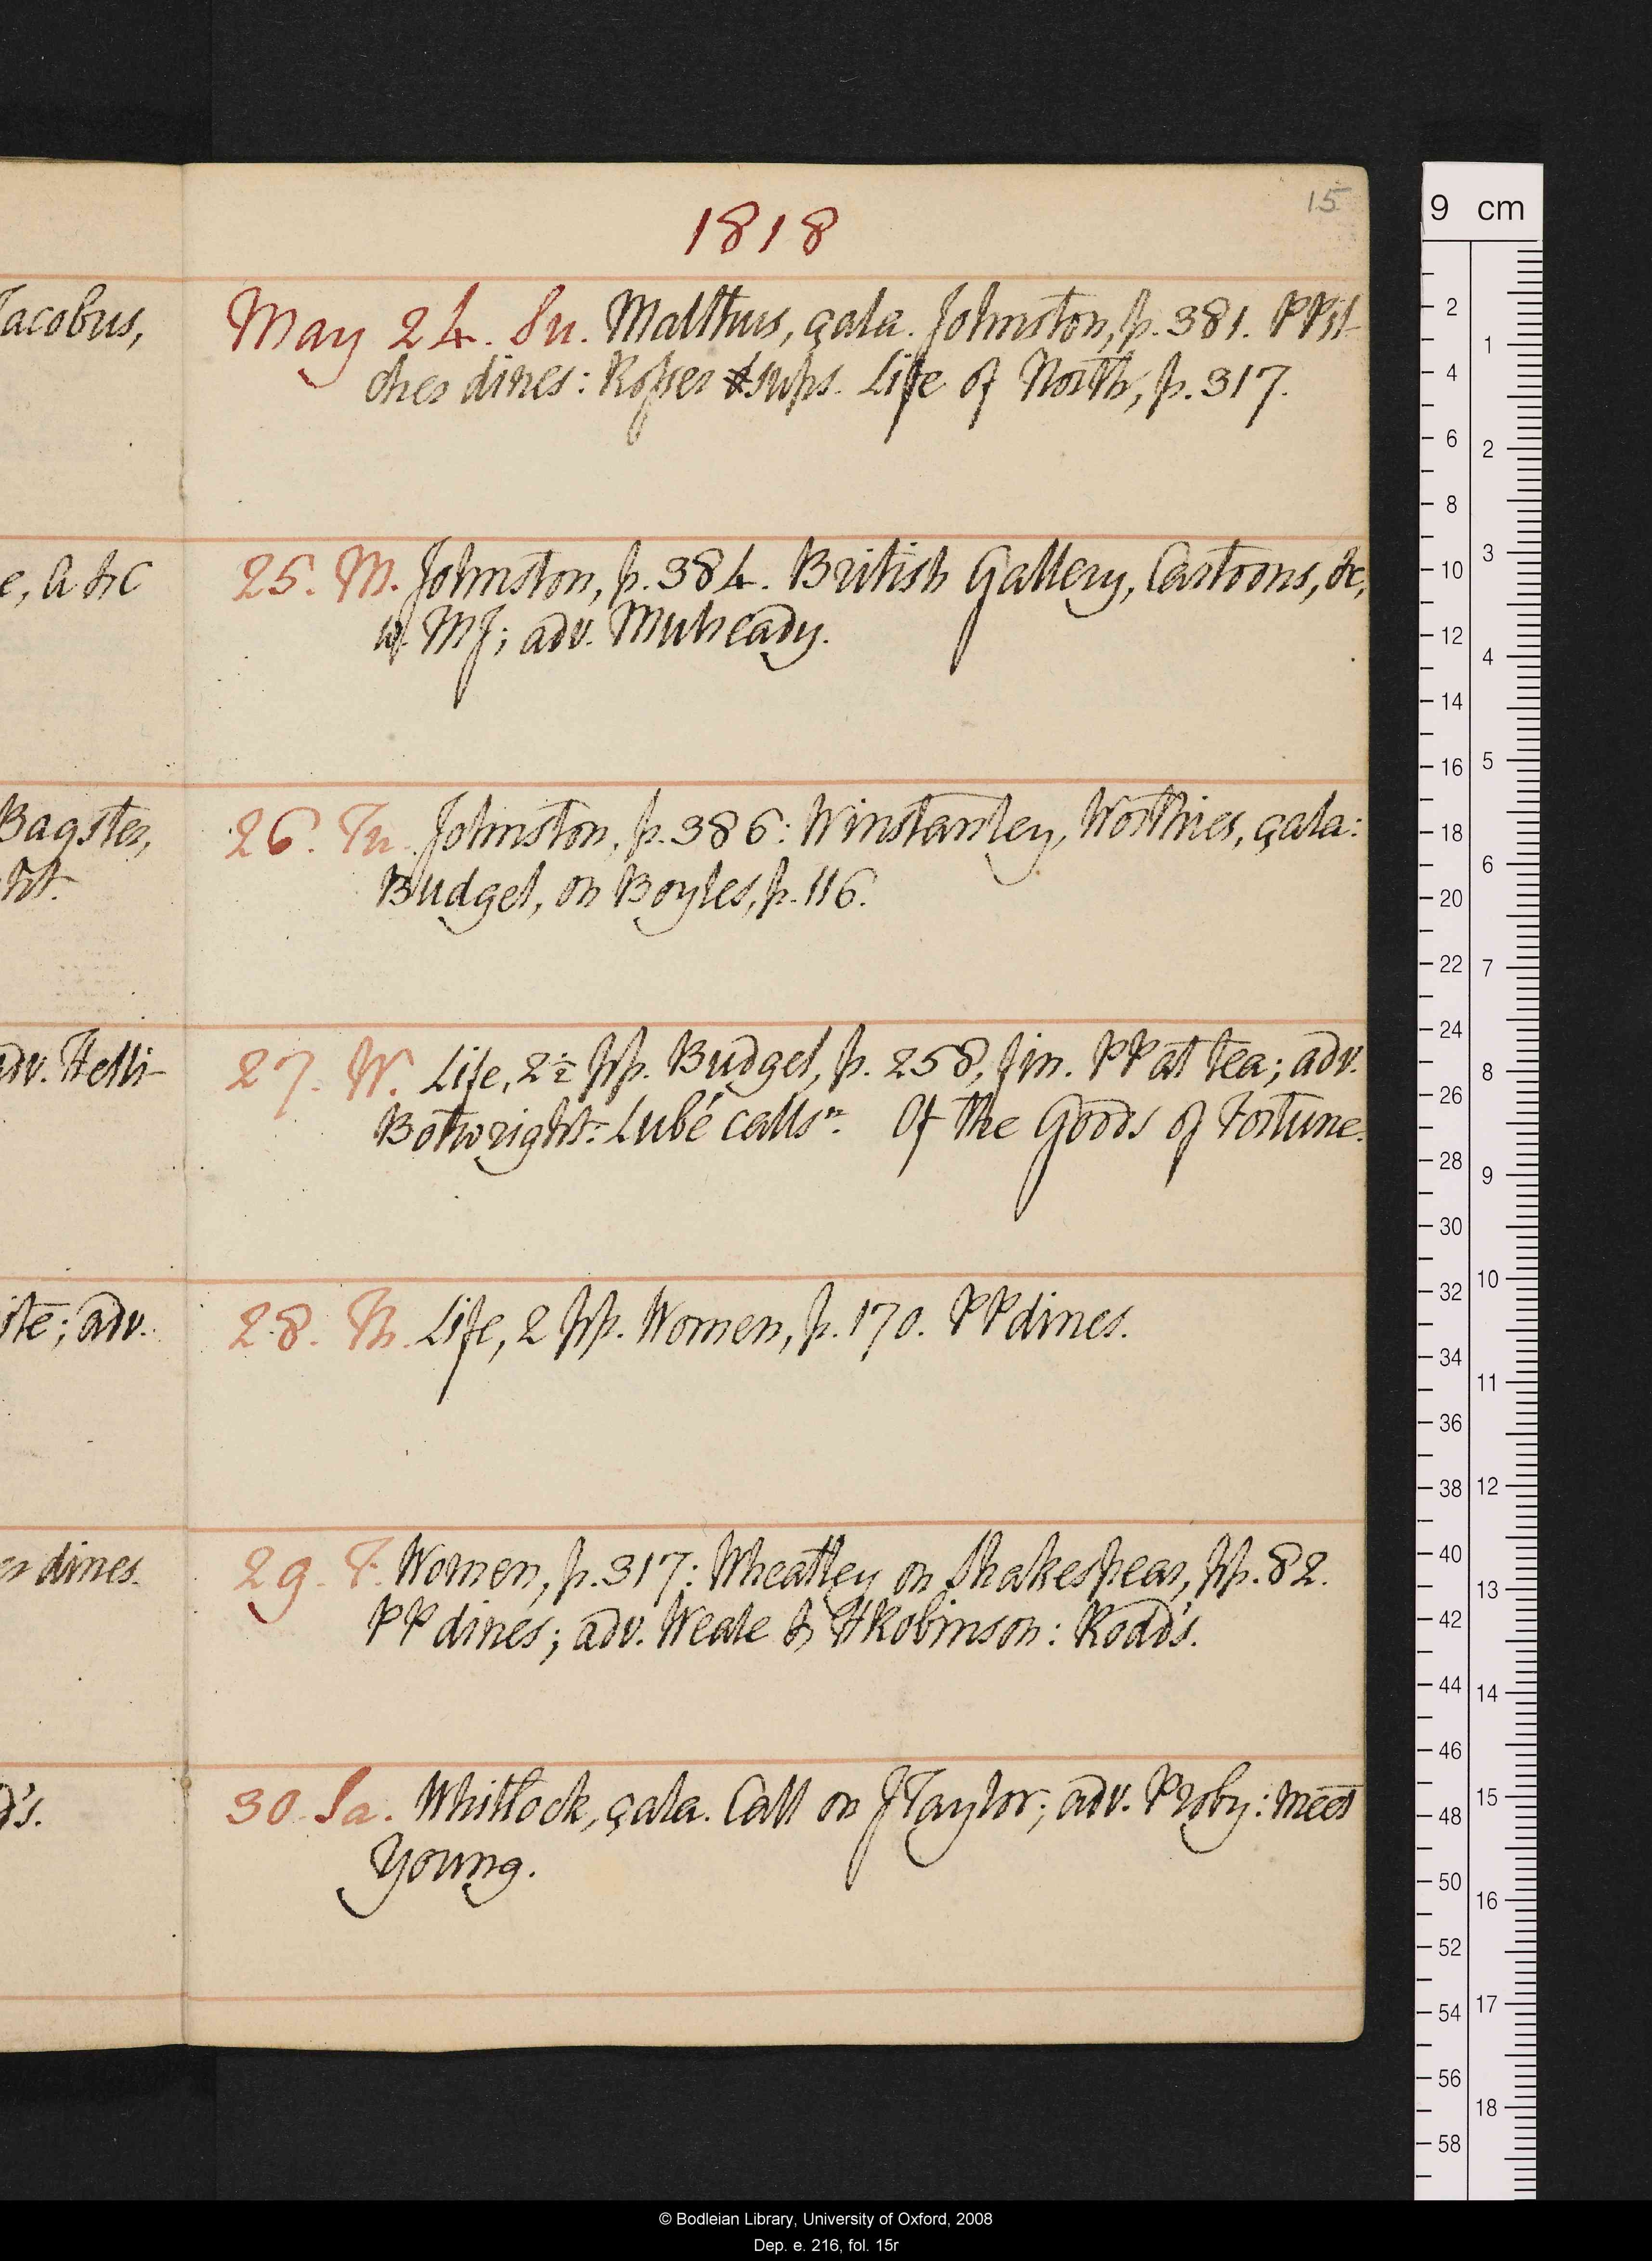 15
1818
Jacobus,
May 24. Su. Malthus, çala. Johnston, p. 381. PPit-
cher dines: Roper sups. Life of North, p. 317.
e, A & C
25. M. Johnston, p. 384. British Gallery, Cartoons, &c,
w. MJ; adv. Mulready.
Bagster,
26. Tu. Johnston, p. 386: Winstanley, Worthies, çala:
Budgel, on Boyles, p. 116.
adv. Helli-
27. W. Life, 2½ pp. Budgel, p. 258, fin. PP at tea; adv.
Botwright: Lubé calls n. Of the Goods of Fortune.
ite; adv.
28. Th. Life, 2 pp. Women, p. 170. PP dines.
er dines.
29. F. Women, p. 317: Wheatley on Shakespear, pp. 82.
PP dines; adv. Weale & HRobinson: Rodd's.
d's.
30. Sa. Whitlock, çala. Call on JTaylor; adv. Proby: meet
Young.
9 cm
2
4
6
8
10
12
14
16
18
20
22
24
26
28
30
32
34
36
38
40
42
44
46
48
50
52
54
56
58
1
2
3
4
5
6
7
8
9
10
11
12
13
14
15
16
17
18
© Bodleian Library, University of Oxford, 2008
Dep. e. 216, fol. 15r